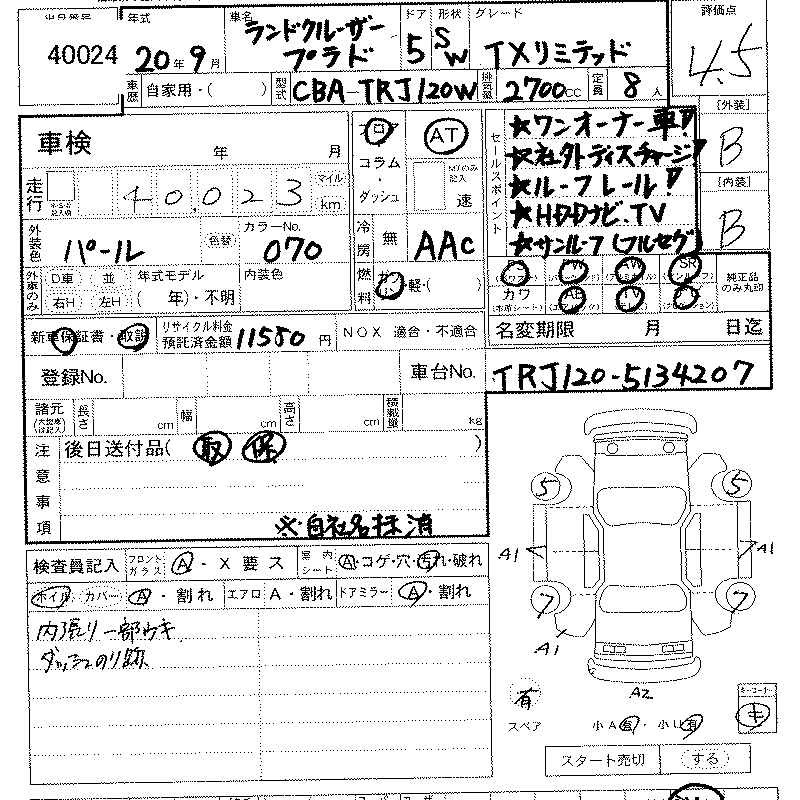 出品番号 年式 車名 ドア 形状 グレード 評価点
40024 20年9月 ランドクルーザープラド 5 SW TXリミテッド 4.5
車歴 自家用・( ) 型式 CBA-TRJ120W 排気量 2700CC 定員 8人
[外装]
B
[内装]
B
車検 年 月
フロア
コラム
・
ダッシュ
AT
MTのみ記入
速
セールスポイント
★ワンオーナー車!
★社外ディスチャージ!
★ルーフレール!
★HDDナビ.TV
★サンルーフ(フルセグ)
走行 40,023 マイル km
外装色 パール 色替 カラーNo. 070
冷房 無 AAC
外車のみ D車 並 右H 左H 年式モデル ( 年)・不明 内装色
燃料 ガソ・軽・( )
PS PW AW SR
カワ AB TV
純正品のみ丸印
新車保証書・取説 リサイクル料金預託済金額 11550円 NOX 適合・不適合
名変期限 月 日迄
登録No. 車台No. TRJ120-5134207
諸元 長さ cm 幅 cm 高さ cm 積載量 kg
注意事項
後日送付品( 取 保 )
※自社名抹消
検査員記入 フロントガラス A・X要ス 室内シート A・コゲ・穴・汚れ・破れ
ホイル カバー A・割れ エアロ A・割れ ドアミラー A・割れ
内張り一部ウキ
ダッシュのり跡
5 5
A1 A1
7 7
A1
A2
有
スペア
小A
小U有
キーコーナー
キ
スタート売切 する